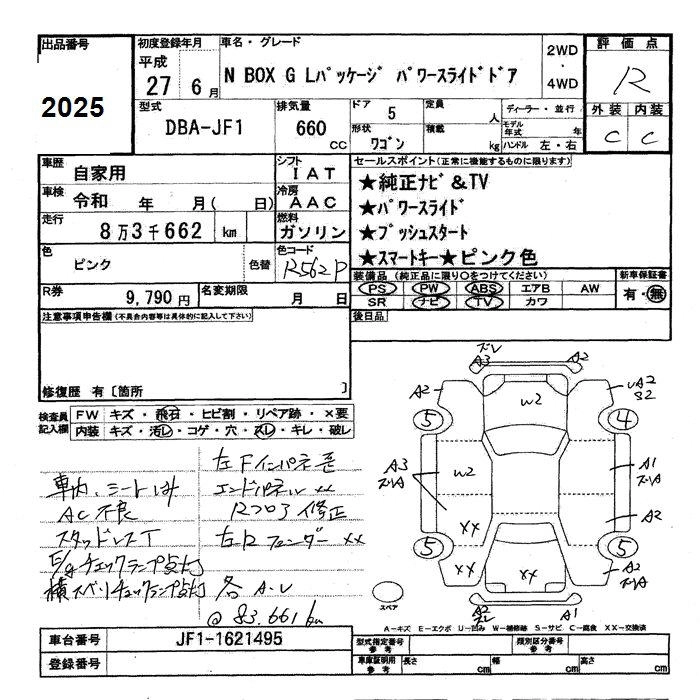 出品番号
2025
初度登録年月
平成
27 6月
車名・グレード
N BOX G Lパッケージ パワースライドドア
2WD
・
4WD
評価点
R
型式
DBA-JF1
排気量
660
cc
ドア 5
定員 人
ディーラー・並行
モデル年式 年
形状 ワゴン
積載 kg
ハンドル 左・右
外装 内装
C C
車歴
自家用
シフト
IAT
車検
令和 年 月( 日)
冷房
AAC
走行
8万3千662 km
燃料
ガソリン
色
ピンク
色替
色コード
R562P
R券
9,790円
名変期限
月 日
セールスポイント(正常に機能するものに限ります)
★純正ナビ&TV
★パワースライド
★プッシュスタート
★スマートキー★ピンク色
装備品 (純正品に限り○をつけてください)
PS PW ABS エアB AW
SR ナビ TV カワ
新車保証書
有・無
後日品
注意事項申告欄(不具合内容等は具体的に記入して下さい)
修復歴 有〔箇所 〕
検査員
記入欄
FW キズ・飛石・ヒビ割・リペア跡・×要
内装 キズ・汚レ・コゲ・穴・スレ・キレ・破レ
車内、シートしみ
AC不良
スタッドレスT
E/gチェックランプ点灯
横スベリチェックランプ点灯
左Fインパネ歪
エンドパネル XX
Rフロア修正
左Rフェンダー XX
各 A.U
@ 83.661km
ズレ
A3 A2
A2 UA2
S2
5 W2 4
A3
ズリA
W2
A1
ズリA
XX A2
5 XX XX 5
A2
ズリA
A2
ズレ
A1
スペア
A-キズ E-エクボ U-凹み W-補修跡 S-サビ C-腐食 XX-交換済
車台番号
JF1-1621495
登録番号
型式指定番号
参考
類別区分番号
参考
車庫証明用
参考
長さ cm
幅 cm
高さ cm